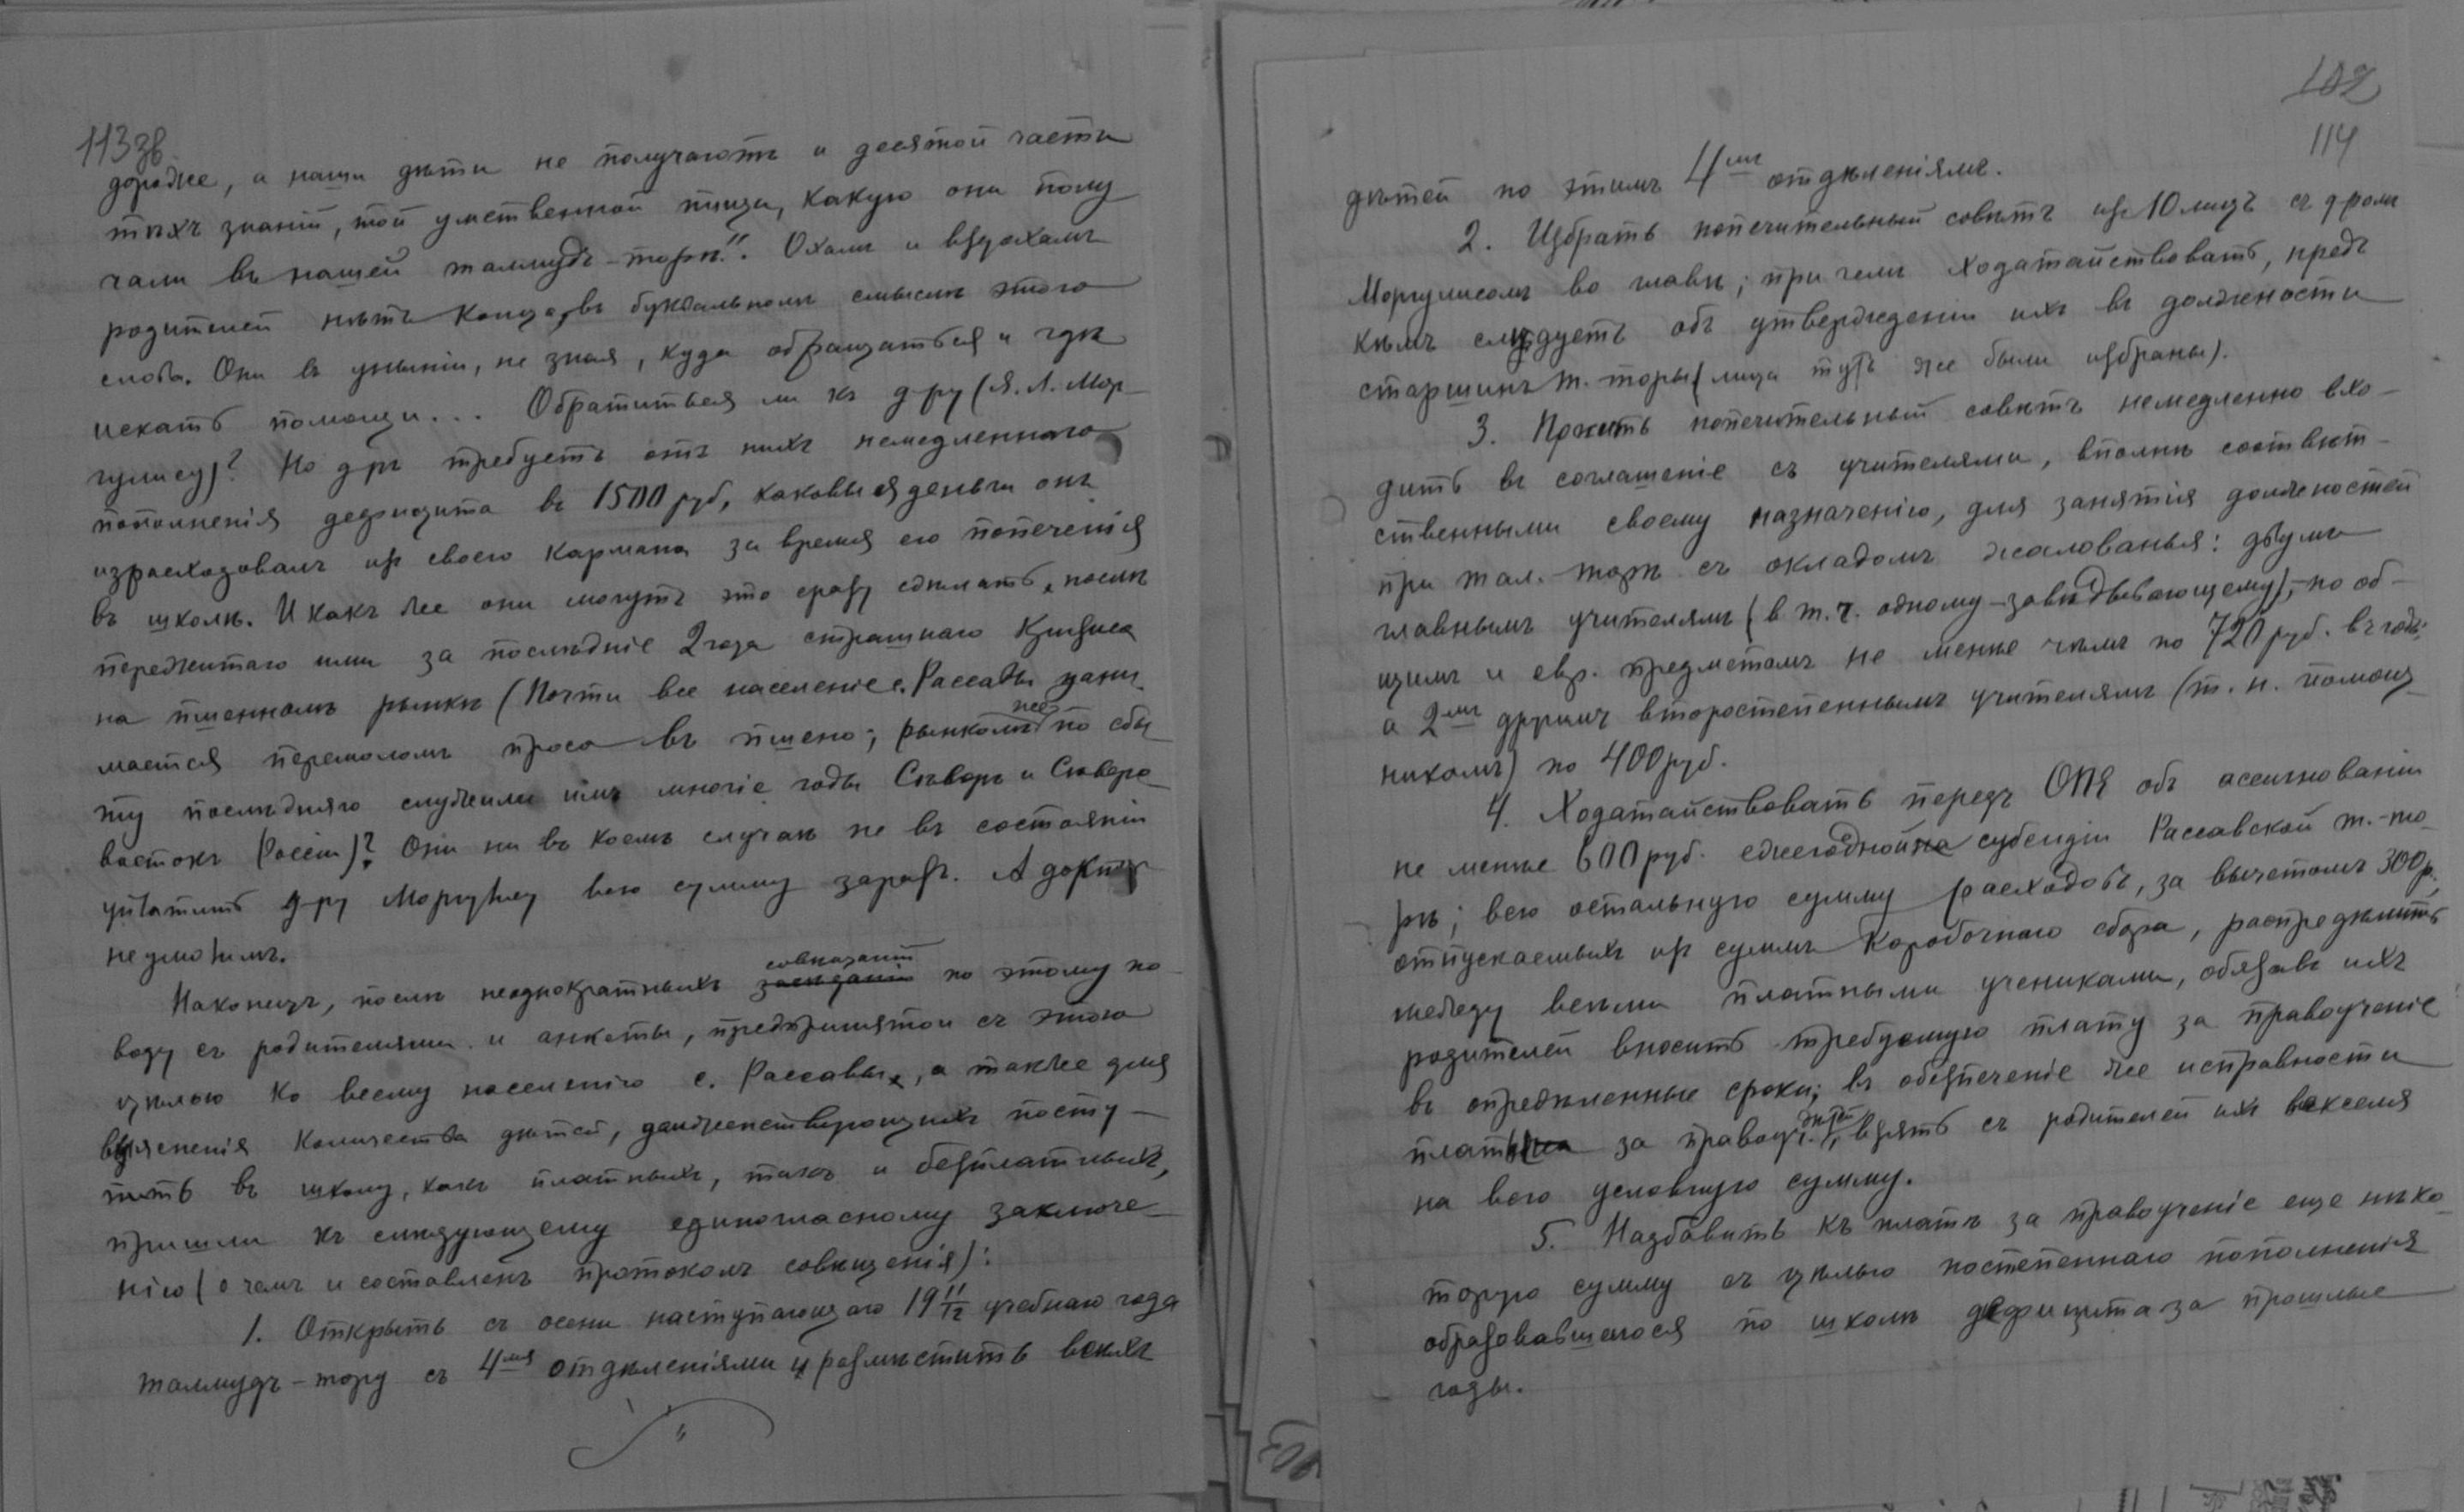 113 зв
дороже, а наши дѣти не получаютъ и десятой части
тѣхъ знаній, той умственной пищи, какую они полу
чали въ нашей талмудъ-торѣ". Охамъ и вздохамъ
родителей нѣтъ конца, въ буквальномъ смыслѣ этого
слова. Они въ уныніи, не зная, куда обращаться и гдѣ
искать помощи... Обратиться ли къ д-ру (Я. Л. Мор-
гулису)? Но д-ръ требуетъ отъ нихъ немедленнаго
пополненія дефицита въ 1500 руб, каковыя деньги онъ
израсходовалъ изъ своего кармана за время его попеченія
въ школѣ. И какъ же они могутъ это сразу сдѣлать, послѣ
пережитаго ими за послѣдніе 2 года страшнаго кризиса
на пшенномъ рынкѣ (Почти все населеніе с. Рассавы зани-
мается перемоломъ проса въ пшено; рынкомъ же по сбы
ту послѣдняго служили имъ многіе годы Сѣверъ и Сѣверо
востокъ Россіи)? Они ни въ коемъ случаѣ не въ состояніи
уплатить д-ру Моргулису всю сумму заразъ. А докторъ
неумолимъ.
Наконецъ, послѣ неоднократныхъ совѣщаній по этому по-
воду съ родителями и анкеты, предпринятой съ этою
цѣлью ко всему населенію с. Рассавы, а также для
выясненія количества дѣтей, долженствующихъ посту-
пить въ школу, какъ платныхъ, такъ и безплатныхъ,
пришли къ слѣдующему единогласному заключе-
нію (о чемъ и составленъ протоколъ совѣщенія):
1. Открыть съ осени наступающаго 19 11/12 учебнаго года
талмудъ-тору съ 4мя отдѣленіями и размѣстить всѣхъ
102
114
дѣтей по этимъ 4мъ отдѣленіямъ.
2. Избрать попечительный совѣтъ изъ 10 лицъ съ д-ромъ
Моргулисомъ во главѣ; при чемъ ходатайствовать, предъ
кѣмъ слѣдуетъ объ утвержденіи ихъ въ должности
старшинъ т.-торы (лица тутъ же были избраны).
3. Просить попечительный совѣтъ немедленно вхо-
дить въ соглашеніе съ учителями, вполнѣ соотвѣт-
ственными своему назначенію, для занятія должностей
при тал.-торѣ съ окладомъ жалованья: двумъ
главнымъ учителямъ (в т. ч. одному-завѣдывающему), по об-
щимъ и евр. предметамъ не менѣе чѣмъ по 720 руб. въ годъ,
а 2мъ другимъ второстепеннымъ учителямъ (т. н. помощ
никамъ) по 400 руб.
4. Ходатайствовать передъ ОПЕ объ ассигнованіи
не менѣе 600 руб. ежегодной субсидіи Рассавской т.-то-
рѣ; всю остальную сумму расходовъ, за вычетомъ 300 р.,
отпускаемыхъ изъ суммъ коробочнаго сбора, распредѣлить
между всѣми платными учениками, обязавъ ихъ
родителей вносить требуемую плату за правоученіе
въ опредѣленные сроки; въ обезпеченіе же исправности
платы за правоуч. дѣтей, взять съ родителей ихъ векселя
на всю условную сумму.
5. Надбавить къ платѣ за правоученіе еще нѣко-
торую сумму съ цѣлью постепеннаго пополненія
образовавшегося по школѣ дефицита за прошлые
годы.